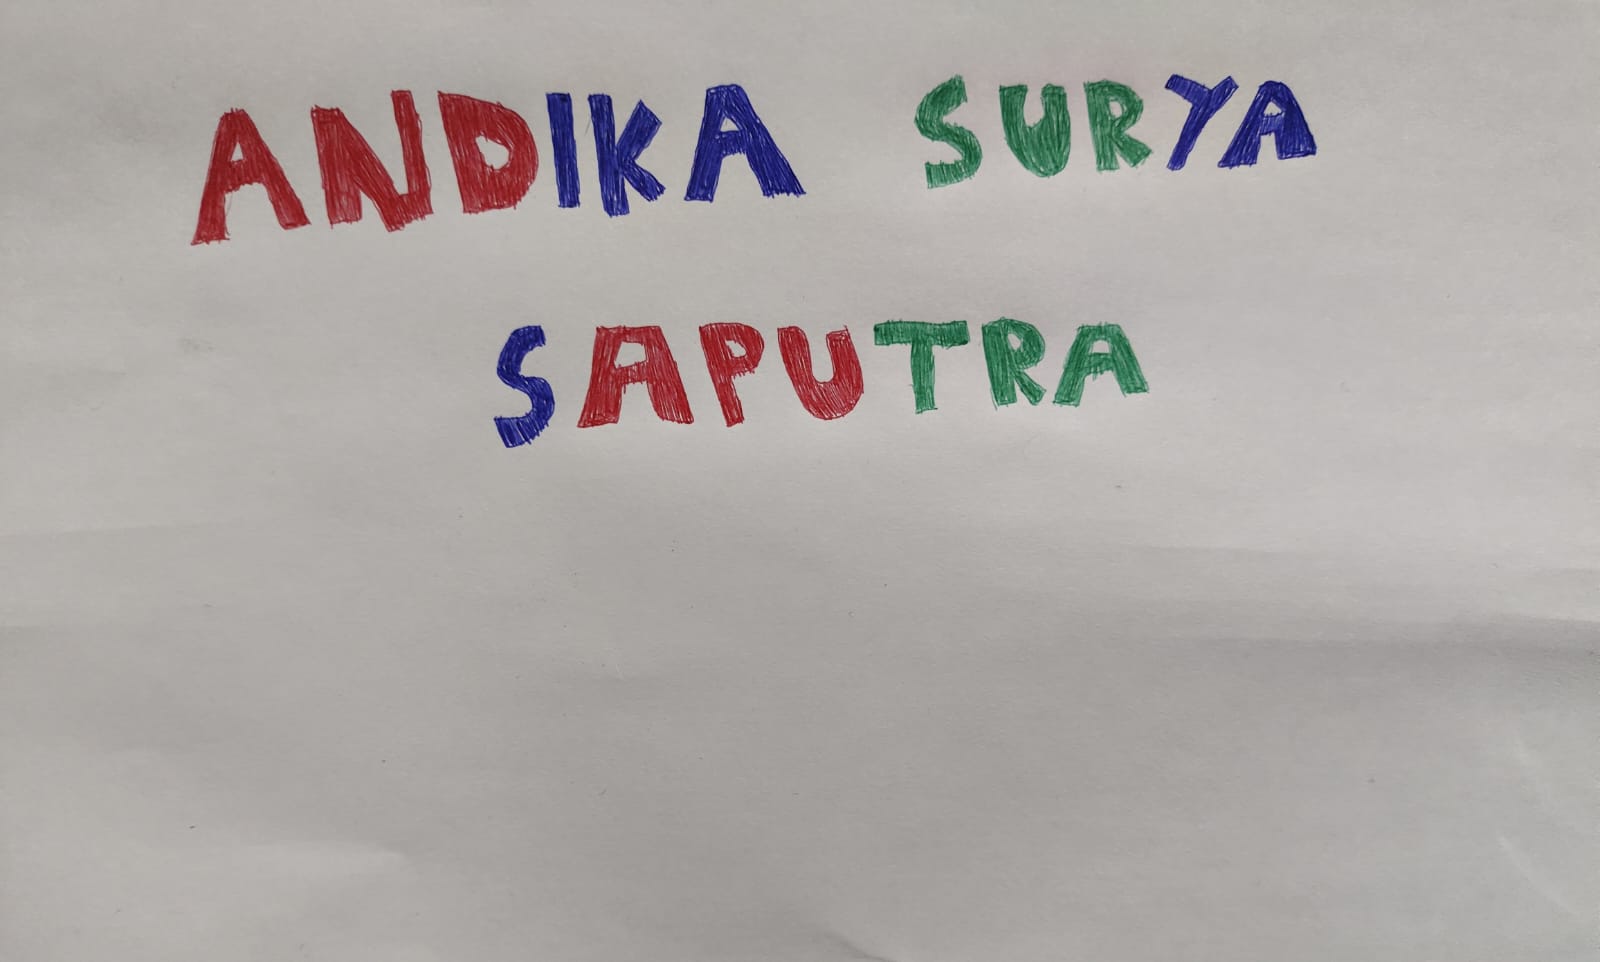 ANDIKA SURYA
SAPUTRA